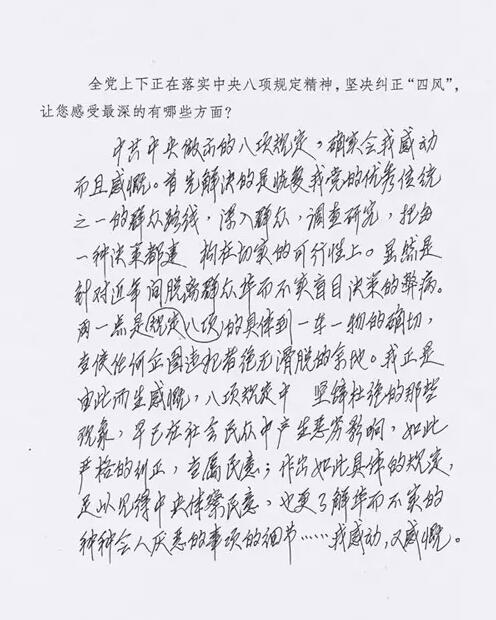 全党上下正在落实中央八项规定精神，坚决纠正“四风”，
让您感受最深的有哪些方面？
中共中央做示的八项规定，确实令我感动
而且感慨。首先解决的是恢复我党的优秀传统
之一的群众路线，深入群众，调查研究，把每
一种决策都建构在切实的可行性上。虽然是
针对近年间脱离群众华而不实盲目决策的弊病。
再一点是规定八项的具体到一车一物的确切，
当使任何企图违犯者绝无滑脱的余地。我正是
由此而生感慨，八项规定中坚锋杜绝的那些
现象，早已在社会民众中产生恶劣影响，如此
严格的纠正，当属民意；作出如此具体的规定，
足以见得中央体察民意，也更了解华而不实的
种种令人厌恶的事项的细节……我感动，又感慨。